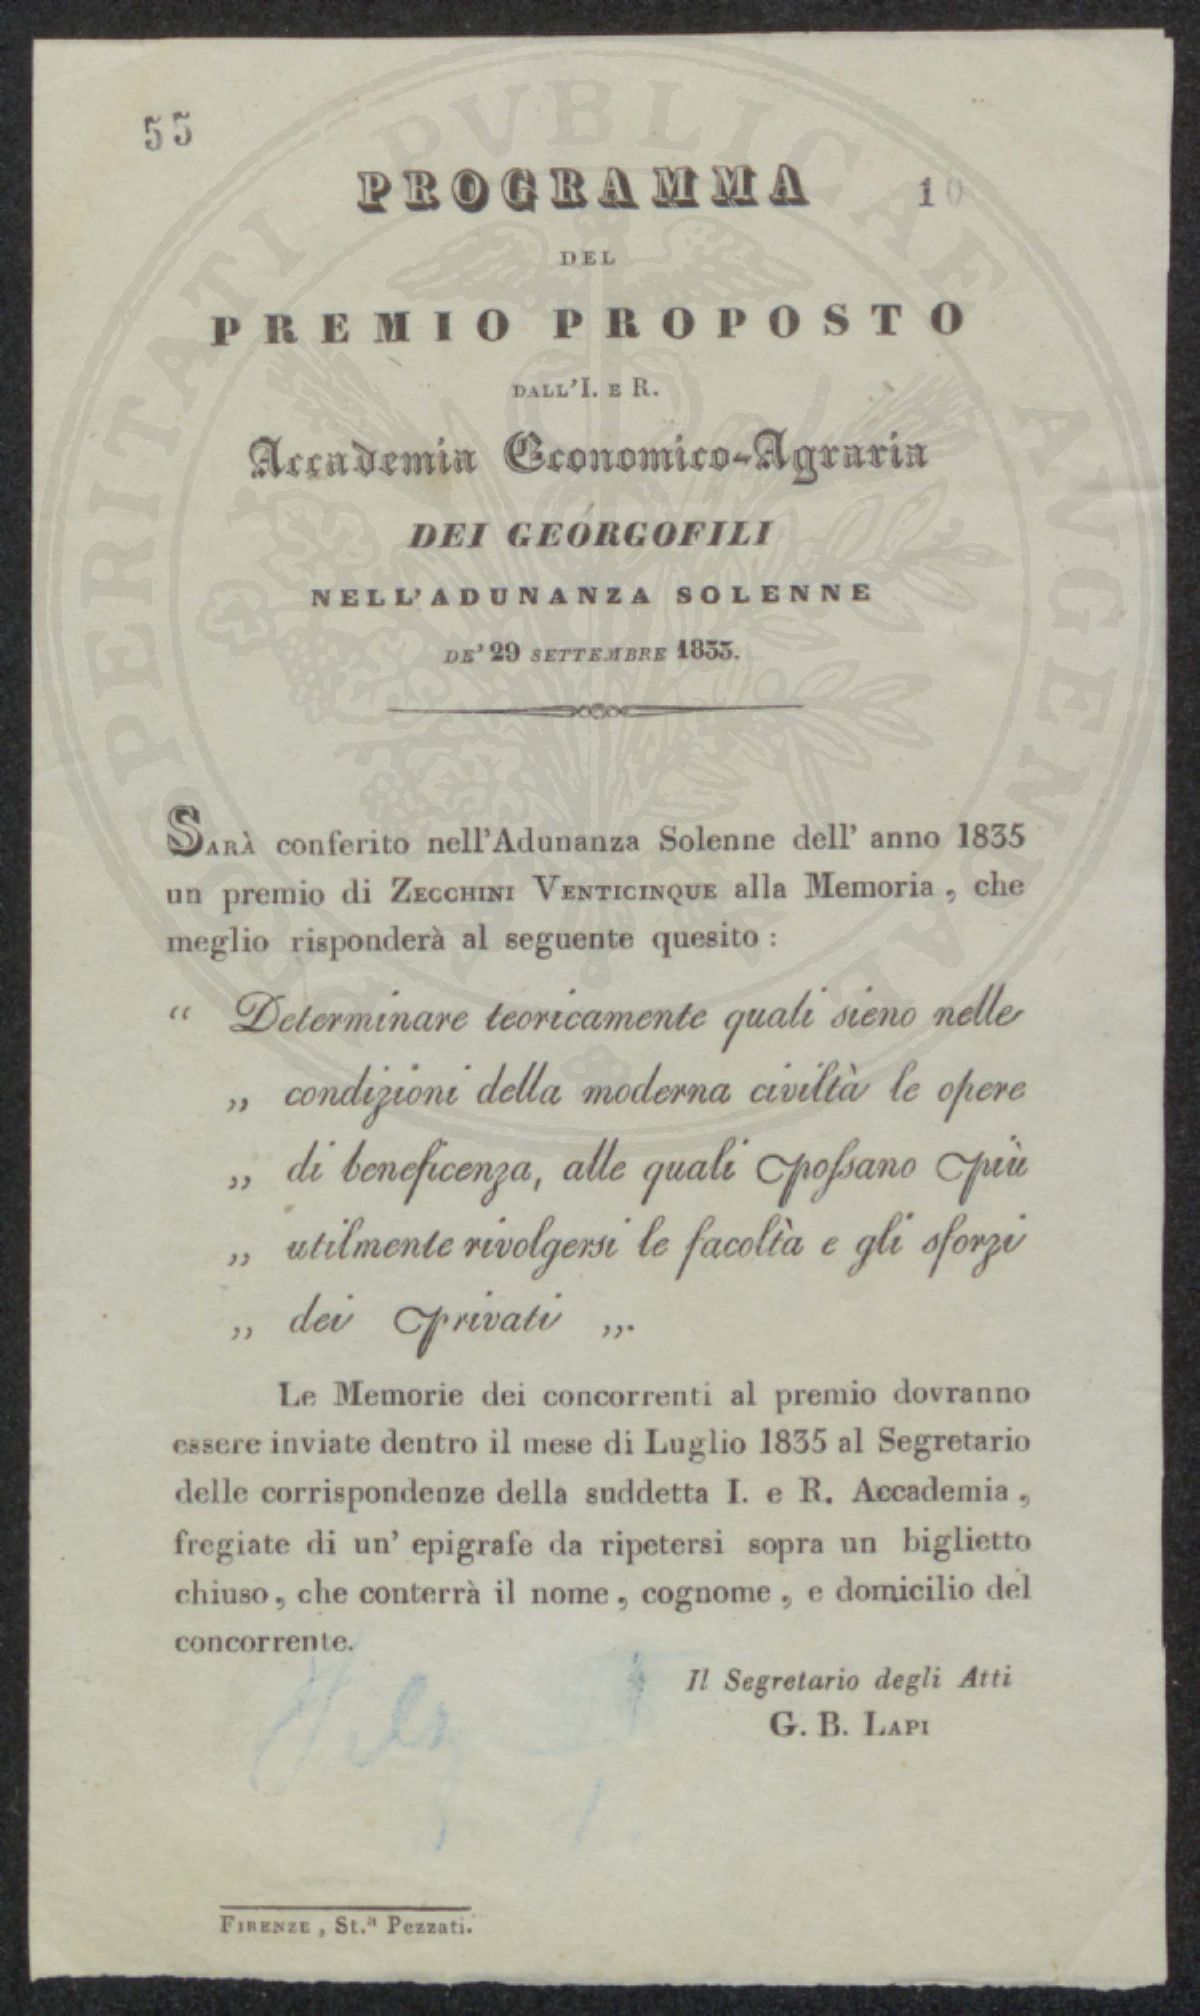 55
PROGRAMMA
10
DEL
PREMIO PROPOSTO
DALL'I. E R.
Accademia Economico-Agraria
DEI GEORGOFILI
NELL'ADUNANZA SOLENNE
DE' 29 SETTEMBRE 1833.
SARÀ conferito nell'Adunanza Solenne dell' anno 1835
un premio di ZECCHINI VENTICINQUE alla Memoria, che
meglio risponderà al seguente quesito:
“ Determinare teoricamente quali sieno nelle
„ condizioni della moderna civiltà le opere
„ di beneficenza, alle quali possano più
„ utilmente rivolgersi le facoltà e gli sforzi
„ dei privati „.
Le Memorie dei concorrenti al premio dovranno
essere inviate dentro il mese di Luglio 1835 al Segretario
delle corrispondenze della suddetta I. e R. Accademia,
fregiate di un' epigrafe da ripetersi sopra un biglietto
chiuso, che conterrà il nome, cognome, e domicilio del
concorrente.
Il Segretario degli Atti
G. B. LAPI
FIRENZE, St.ª Pezzati.
PROSPERITATI PVBLICAE AVGENDAE